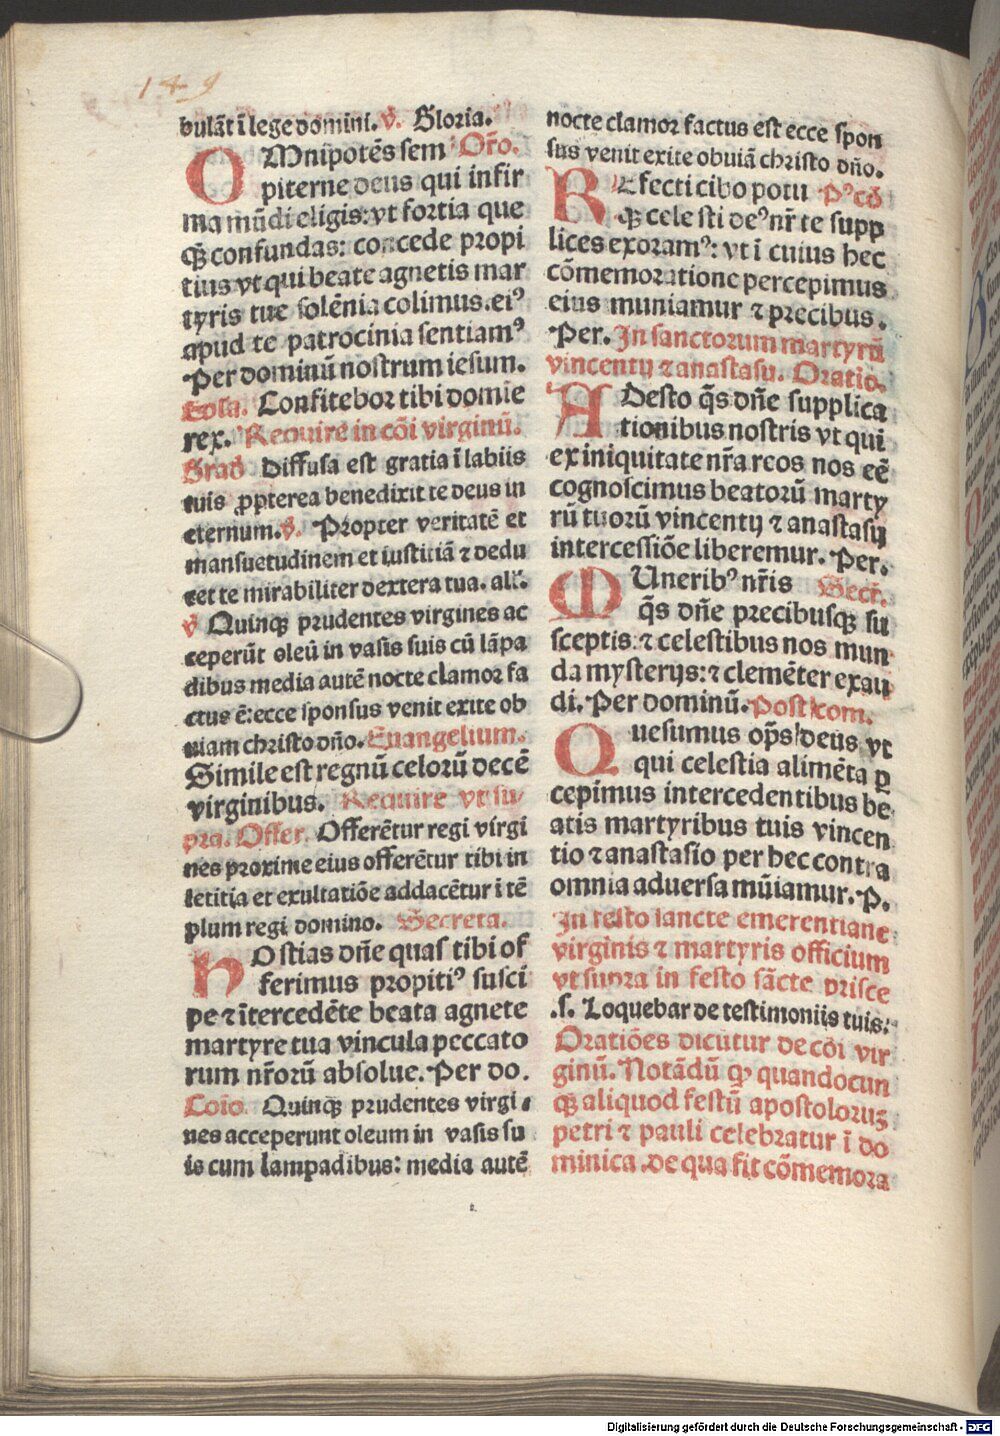 149
bulāt ī lege domini. v̄. Gloria.
OMnipotēs sem Or̄o.
piterne deus qui infir
ma mūdi eligis: vt fortia que
qꝫ confundas: concede propi
tius vt qui beate agnetis mar
tyris tue solēnia colimus. ei⁹
apud te patrocinia sentiam⁹
Per dominū nostrum iesum.
Epl̄a. Confitebor tibi domie
rex. Require in cōi virginū.
Grad̄ Diffusa est gratia ī labiis
tuis ꝓpterea benedixit te deus in
eternum. v̄. Propter veritatē et
mansuetudinem et iusticiā ⁊ dedu
cet te mirabiliter dextera tua. all'.
v̄ Quinqꝫ prudentes virgines ac
ceperūt oleū in vasis suis cū lāpa
dibus media autē nocte clamor fa
ctus ē: ecce sponsus venit exite ob
uiam christo dn̄o. Euangelium.
Simile est regnū celorū decē
virginibus. Require vt su/
pra. Offer. Offerētur regi virgi
nes proxime eius offerētur tibi in
letitia et exultatiōe addacētur ī tē
plum regi domino. Secreta.
HOstias dn̄e quas tibi of
ferimus propiti⁹ susci
pe ⁊ ītercedēte beata agnete
martyre tua vincula peccato
rum nr̄orū absolue. Per do.
Cōio. Quinqꝫ prudentes virgi
nes acceperunt oleum in vasis su
is cum lampadibus: media autē
nocte clamor factus est ecce spon
sus venit exite obuiā christo dn̄o.
REfecti cibo potu P⁹cō
qꝫ celesti de⁹ nr̄ te supp
lices exoram⁹: vt ī cuius hec
cōmemoratione percepimus
eius muniamur ⁊ precibus.
Per. In sanctorum martyrū
vincentij ⁊ anastasij. Oratio.
ADesto q̄s dn̄e supplica
tionibus nostris vt qui
ex iniquitate nr̄a reos nos eē
cognoscimus beatorū marty
rū tuorū vincentij ⁊ anastasij
intercessiōe liberemur. Per.
MUnerib⁹ nr̄is Secr̄.
q̄s dn̄e precibusqꝫ su
sceptis: ⁊ celestibus nos mun
da mysterijs: ⁊ clemēter exau
di. Per dominū. Post com.
QUesumus op̄s deus vt
qui celestia alimēta ꝑ
cepimus intercedentibus be
atis martyribus tuis vincen
tio ⁊ anastasio per hec contra
omnia aduersa mūiamur. P.
In festo sancte emerentiane
virginis ⁊ martyris officium
vt supra in festo sācte prisce
.s. Loquebar de testimoniis tuis:
Oratiōes dicūtur de cōi vir
ginū. Notādū qꝫ quandocun
qꝫ aliquod festū apostoloruꝫ
petri ⁊ pauli celebratur ī do
minica .de qua fit cōmemora
Digitalisierung gefördert durch die Deutsche Forschungsgemeinschaft - DFG